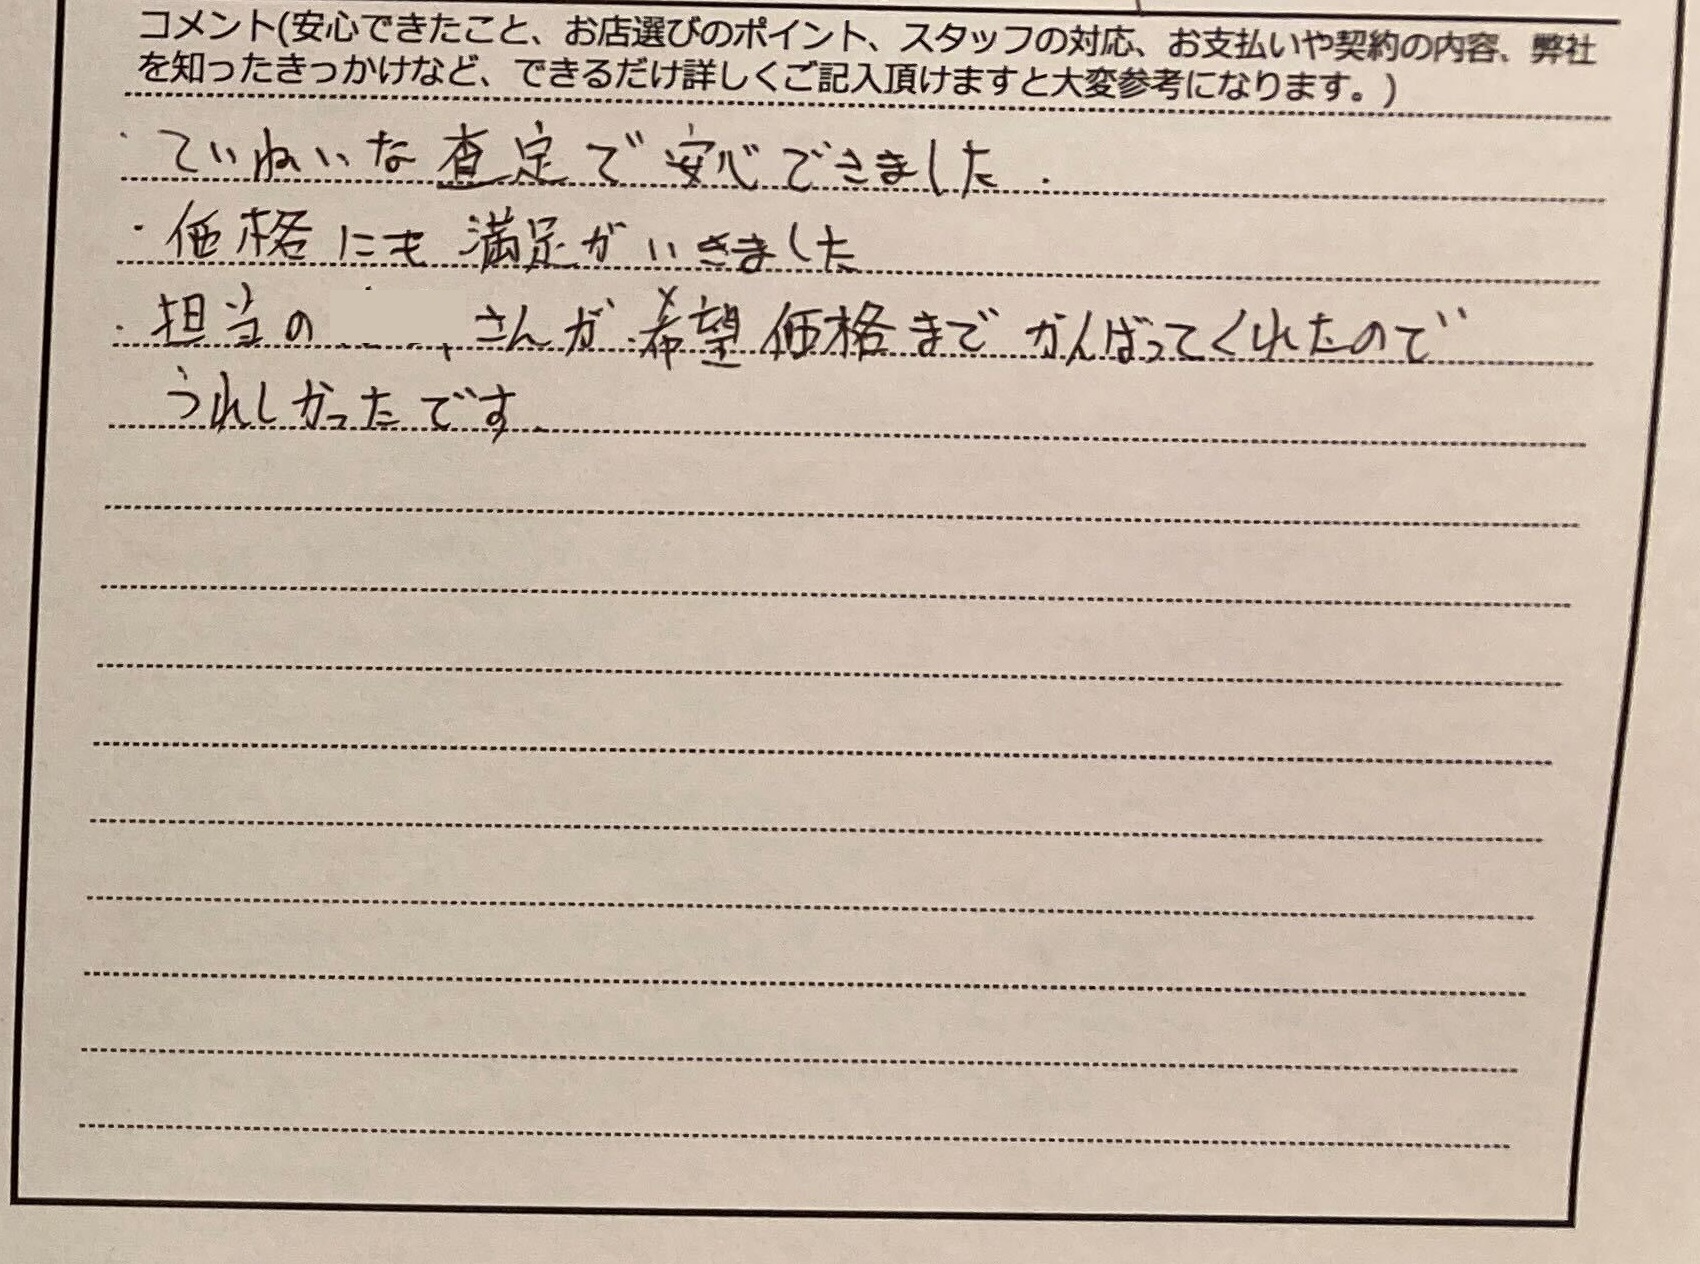 コメント(安心できたこと、お店選びのポイント、スタッフの対応、お支払いや契約の内容、弊社
を知ったきっかけなど、できるだけ詳しくご記入頂けますと大変参考になります。)
・ていねいな査定で安心できました.
・価格にも満足がいきました
・担当の さんが希望価格までがんばってくれたので
うれしかったです.